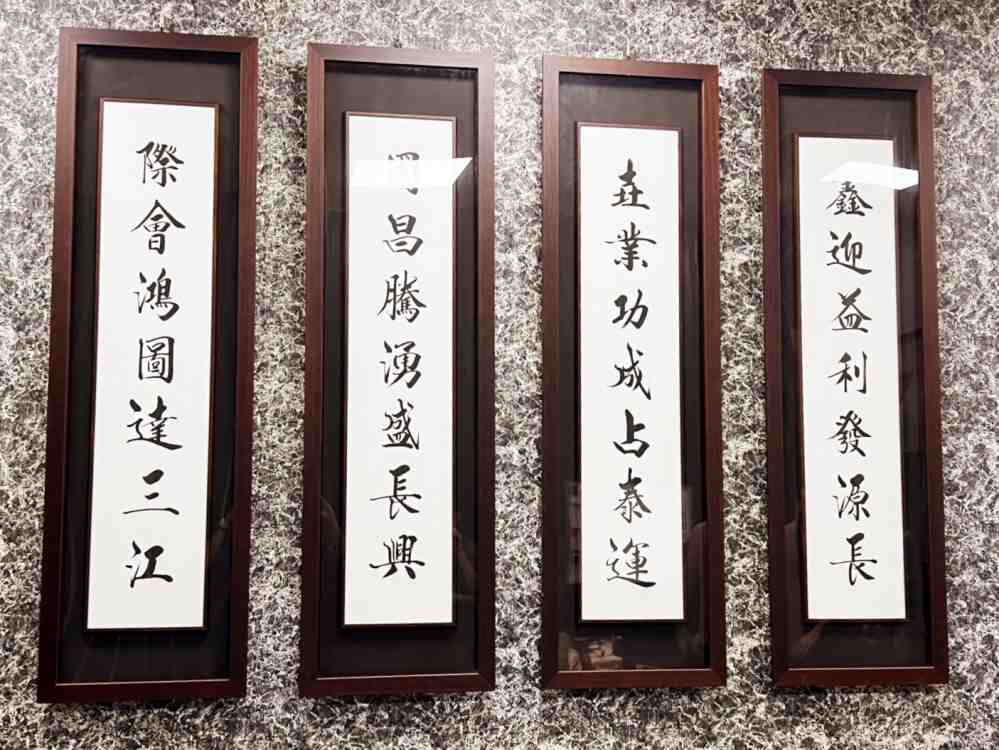 鑫迎益利發源長
垚業功成占泰運
昌騰湧盛長興
際會鴻圖達三江